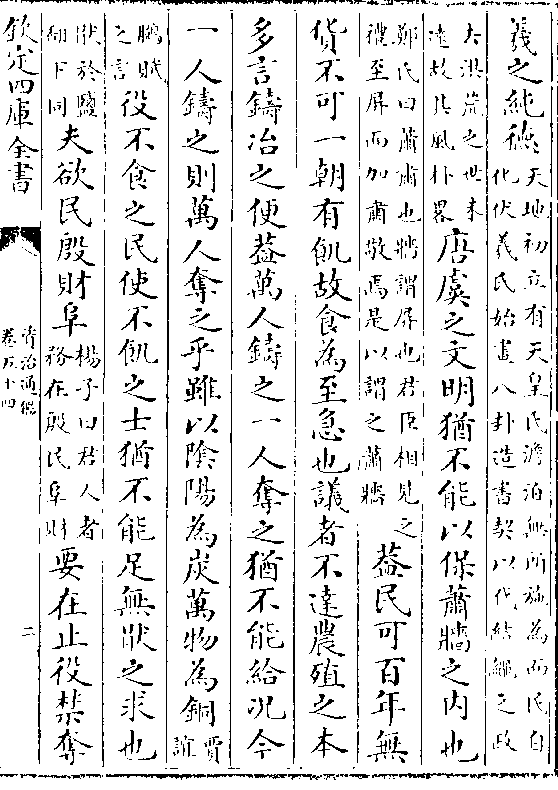 羲之純徳天地初立有天皇氏澹泊無所施為而民自
化伏羲氏始畫八卦造書契以代結繩之政
大洪荒之世未
遠故其風朴畧唐虞之文明猶不能以保蕭牆之内也
鄭氏曰蕭肅也牆謂屏也君臣相見之
禮至屏而加肅敬焉是以謂之蕭牆葢民可百年無
貨不可一朝有飢故食為至急也議者不達農殖之本
多言鑄冶之便葢萬人鑄之一人奪之猶不能給况今
一人鑄之則萬人奪之乎雖以隂陽為炭萬物為銅賈
誼
鵬賦
之言役不食之民使不飢之士猶不能足無猒之求也
猒於鹽
翻下同夫欲民殷財阜楊子曰君人者
務在殷民阜財要在止役禁奪
欽定四庫全書
資治通鑑
卷五十四
二